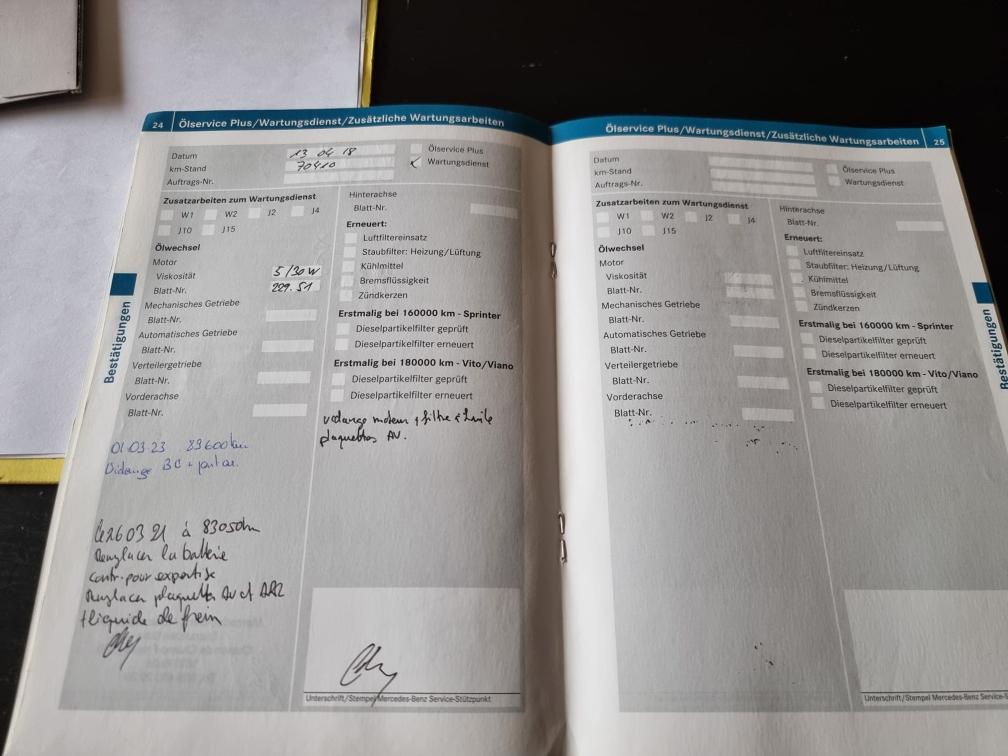 24 Ölservice Plus/Wartungsdienst/Zusätzliche Wartungsarbeiten
Datum 13 04 18
km-Stand 70410
Auftrags-Nr.
Ölservice Plus
Wartungsdienst
Zusatzarbeiten zum Wartungsdienst
W1 W2 J2 J4
J10 J15
Ölwechsel
Motor
Viskosität 5/30W
Blatt-Nr. 229.51
Mechanisches Getriebe
Blatt-Nr.
Automatisches Getriebe
Blatt-Nr.
Verteilergetriebe
Blatt-Nr.
Vorderachse
Blatt-Nr.
01.03.23 83600km
BC +
Le 26 03 21 à 83050km
Remplacer la batterie
contr. pour expertise
Remplacer plaquettes AV et ARR
+ liquide de frein
Hinterachse
Blatt-Nr.
Erneuert:
Luftfiltereinsatz
Staubfilter: Heizung/Lüftung
Kühlmittel
Bremsflüssigkeit
Zündkerzen
Erstmalig bei 160000 km - Sprinter
Dieselpartikelfilter geprüft
Dieselpartikelfilter erneuert
Erstmalig bei 180000 km - Vito/Viano
Dieselpartikelfilter geprüft
Dieselpartikelfilter erneuert
moteur + filtre à huile
plaquettes AV.
Unterschrift/Stempel Mercedes-Benz Service-Stützpunkt
Bestätigungen
Ölservice Plus/Wartungsdienst/Zusätzliche Wartungsarbeiten 25
Datum
km-Stand
Auftrags-Nr.
Ölservice Plus
Wartungsdienst
Zusatzarbeiten zum Wartungsdienst
W1 W2 J2 J4
J10 J15
Ölwechsel
Motor
Viskosität
Blatt-Nr.
Mechanisches Getriebe
Blatt-Nr.
Automatisches Getriebe
Blatt-Nr.
Verteilergetriebe
Blatt-Nr.
Vorderachse
Blatt-Nr.
Hinterachse
Blatt-Nr.
Erneuert:
Luftfiltereinsatz
Staubfilter: Heizung/Lüftung
Kühlmittel
Bremsflüssigkeit
Zündkerzen
Erstmalig bei 160000 km - Sprinter
Dieselpartikelfilter geprüft
Dieselpartikelfilter erneuert
Erstmalig bei 180000 km - Vito/Viano
Dieselpartikelfilter geprüft
Dieselpartikelfilter erneuert
Unterschrift/Stempel Mercedes-Benz Service-S
Bestätigungen